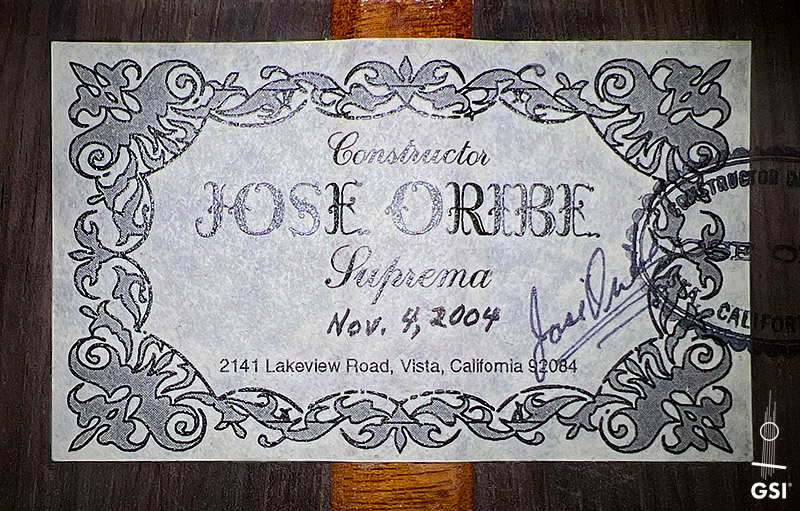 Constructor
JOSE ORIBE
Suprema
Nov. 4, 2004
Jose Oribe
2141 Lakeview Road, Vista, California 92084
CONSTRUCTOR
CALIFOR
GSI